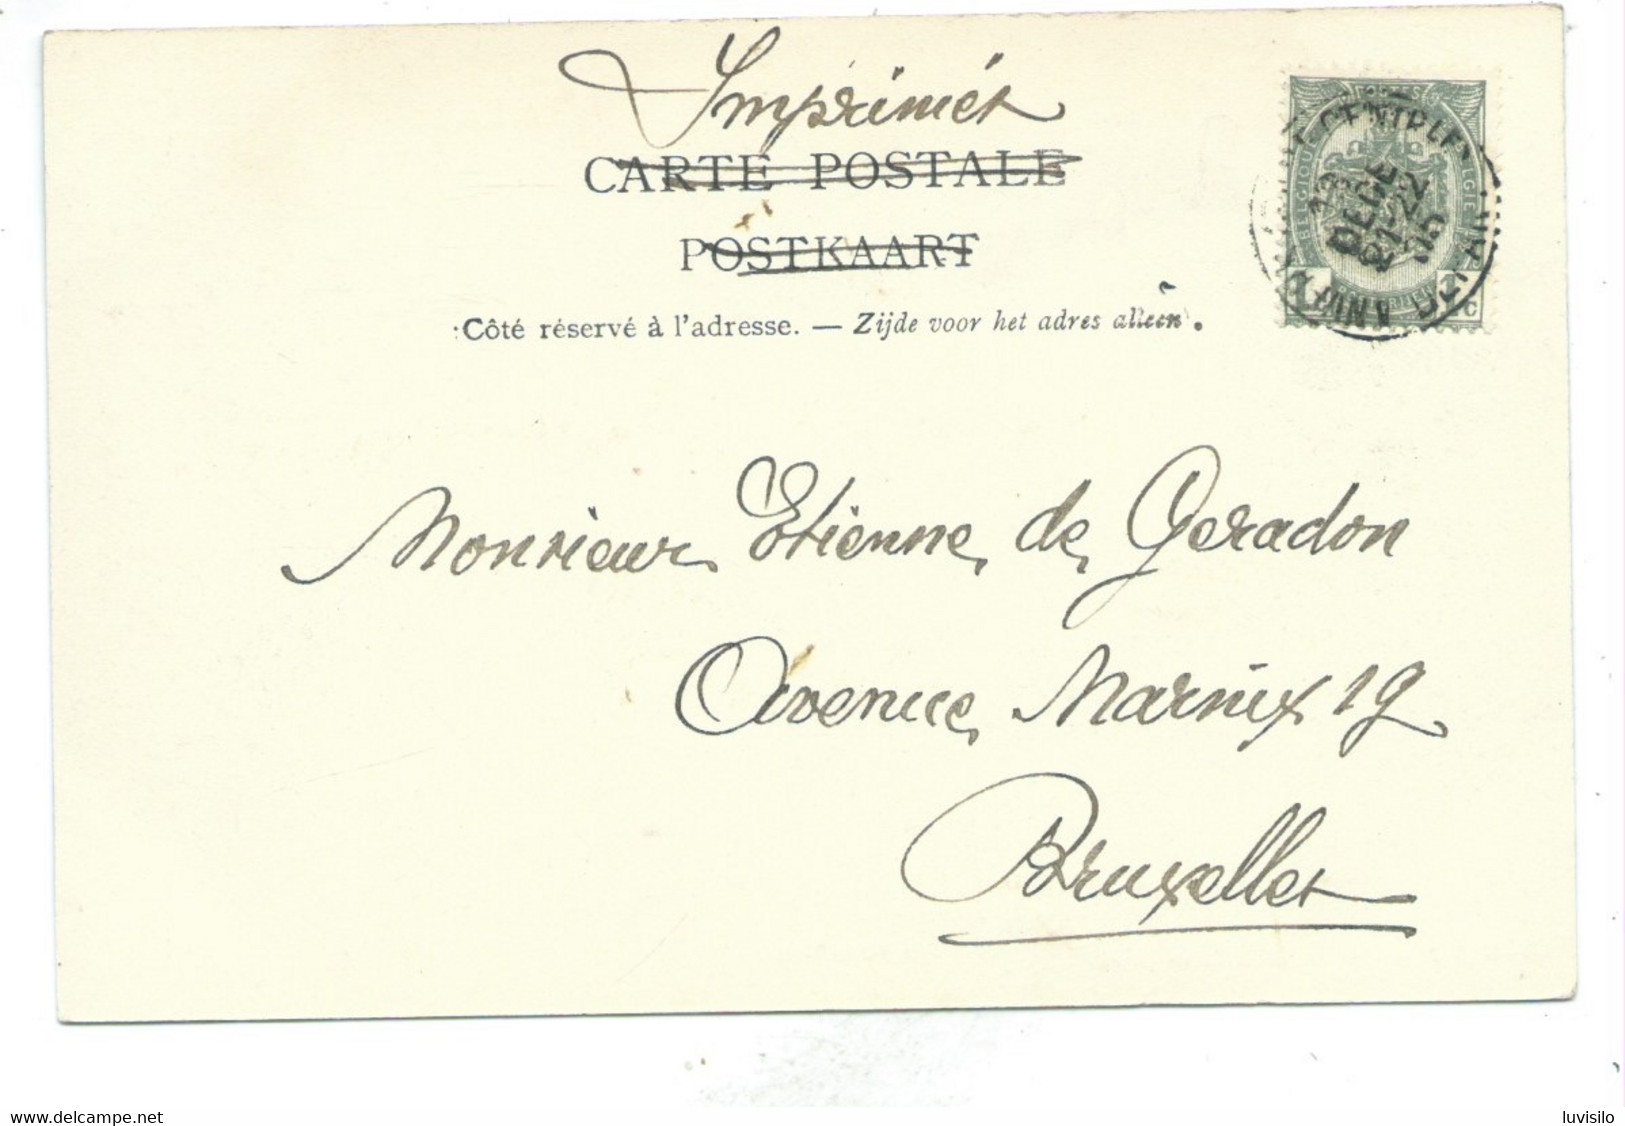 Imprimés
CARTE POSTALE
POSTKAART
Côté réservé à l'adresse. — Zijde voor het adres alleen.
BELGIQUE
13
DECE
21-22
05
Monsieur Etienne de Geradon
Avenue Marnix 19
Bruxelles
www.delcampe.net
luvisilo